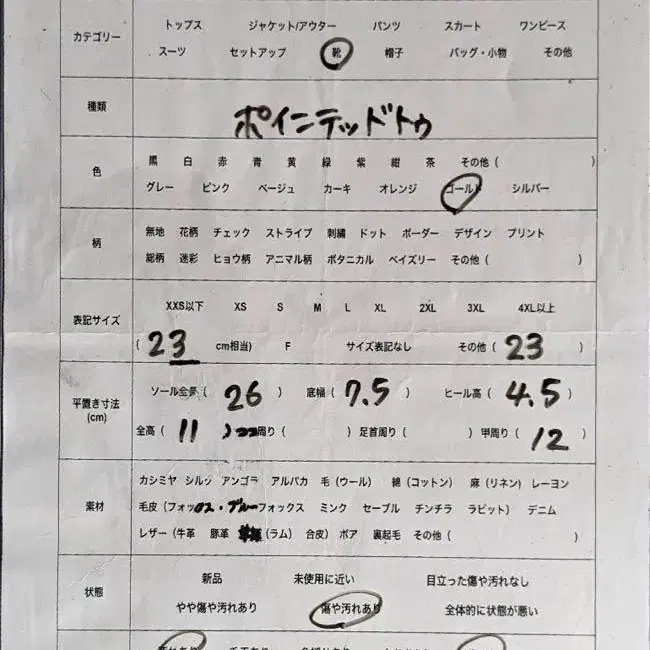 カテゴリー
トップス ジャケット/アウター パンツ スカート ワンピース
スーツ セットアップ 靴 帽子 バッグ・小物 その他
種類
ポインテッドトゥ
色
黒 白 赤 青 黄 緑 紫 紺 茶 その他 ( )
グレー ピンク ベージュ カーキ オレンジ ゴールド シルバー
柄
無地 花柄 チェック ストライプ 刺繍 ドット ボーダー デザイン プリント
総柄 迷彩 ヒョウ柄 アニマル柄 ボタニカル ペイズリー その他 ( )
表記サイズ
XXS以下 XS S M L XL 2XL 3XL 4XL以上
( 23 cm相当) F サイズ表記なし その他 ( 23 )
平置き寸法
(cm)
ソール全長 ( 26 ) 底幅 ( 7.5 ) ヒール高 ( 4.5 )
全高 ( 11 ) 周り ( ) 足首周り ( ) 甲周り ( 12 )
素材
カシミヤ シルク アンゴラ アルパカ 毛 (ウール) 綿 (コットン) 麻 (リネン) レーヨン
毛皮 (フォックス・ブルーフォックス ミンク セーブル チンチラ ラビット) デニム
レザー (牛革 豚革 (ラム) 合皮) ボア 裏起毛 その他 ( )
状態
新品 未使用に近い 目立った傷や汚れなし
やや傷や汚れあり 傷や汚れあり 全体的に状態が悪い